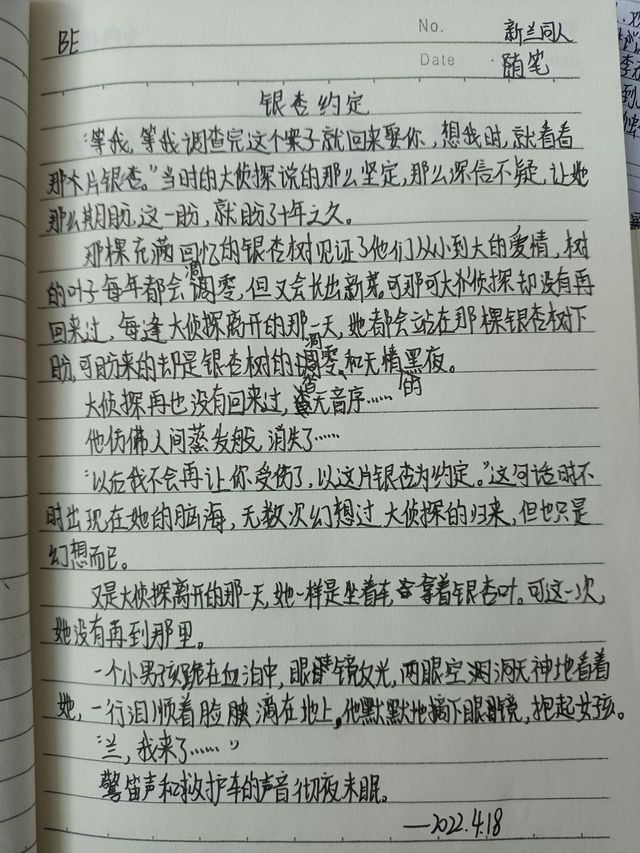 BE
No. 新兰同人
Date 随笔
银杏约定
“等我,等我调查完这个案子就回来娶你,想我时,就看看
那片银杏。”当时的大侦探说的那么坚定,那么深信不疑,让她
那么期盼,这一盼,就盼了十年之久。
那棵充满回忆的银杏树见证了他们从小到大的爱情,树
的叶子每年都会凋零,但又会长出新芽。可那可大侦探却没有再
回来过,每逢大侦探离开的那一天,她都会站在那棵银杏树下
盼,可盼来的却是银杏树的凋零、和无情的黑夜。
大侦探再也没有回来过,杳无音序……
他仿佛人间蒸发般,消失了……
“以后我不会再让你受伤了,以这片银杏为约定。”这句话时不
时出现在她的脑海,无数次幻想过大侦探的归来,但也只是
幻想而已。
又是大侦探离开的那一天,她一样是坐着车拿着银杏叶。可这一次,
她没有再到那里。
一个小男孩跪在血泊中,眼镜放光,两眼空洞洞无神地看着
她,一行泪顺着脸腴滴在地上,他默默地摘下眼镜,抱起女孩。
“兰,我来了……”
警笛声和救护车的声音彻夜未眠。
—2022.4.18